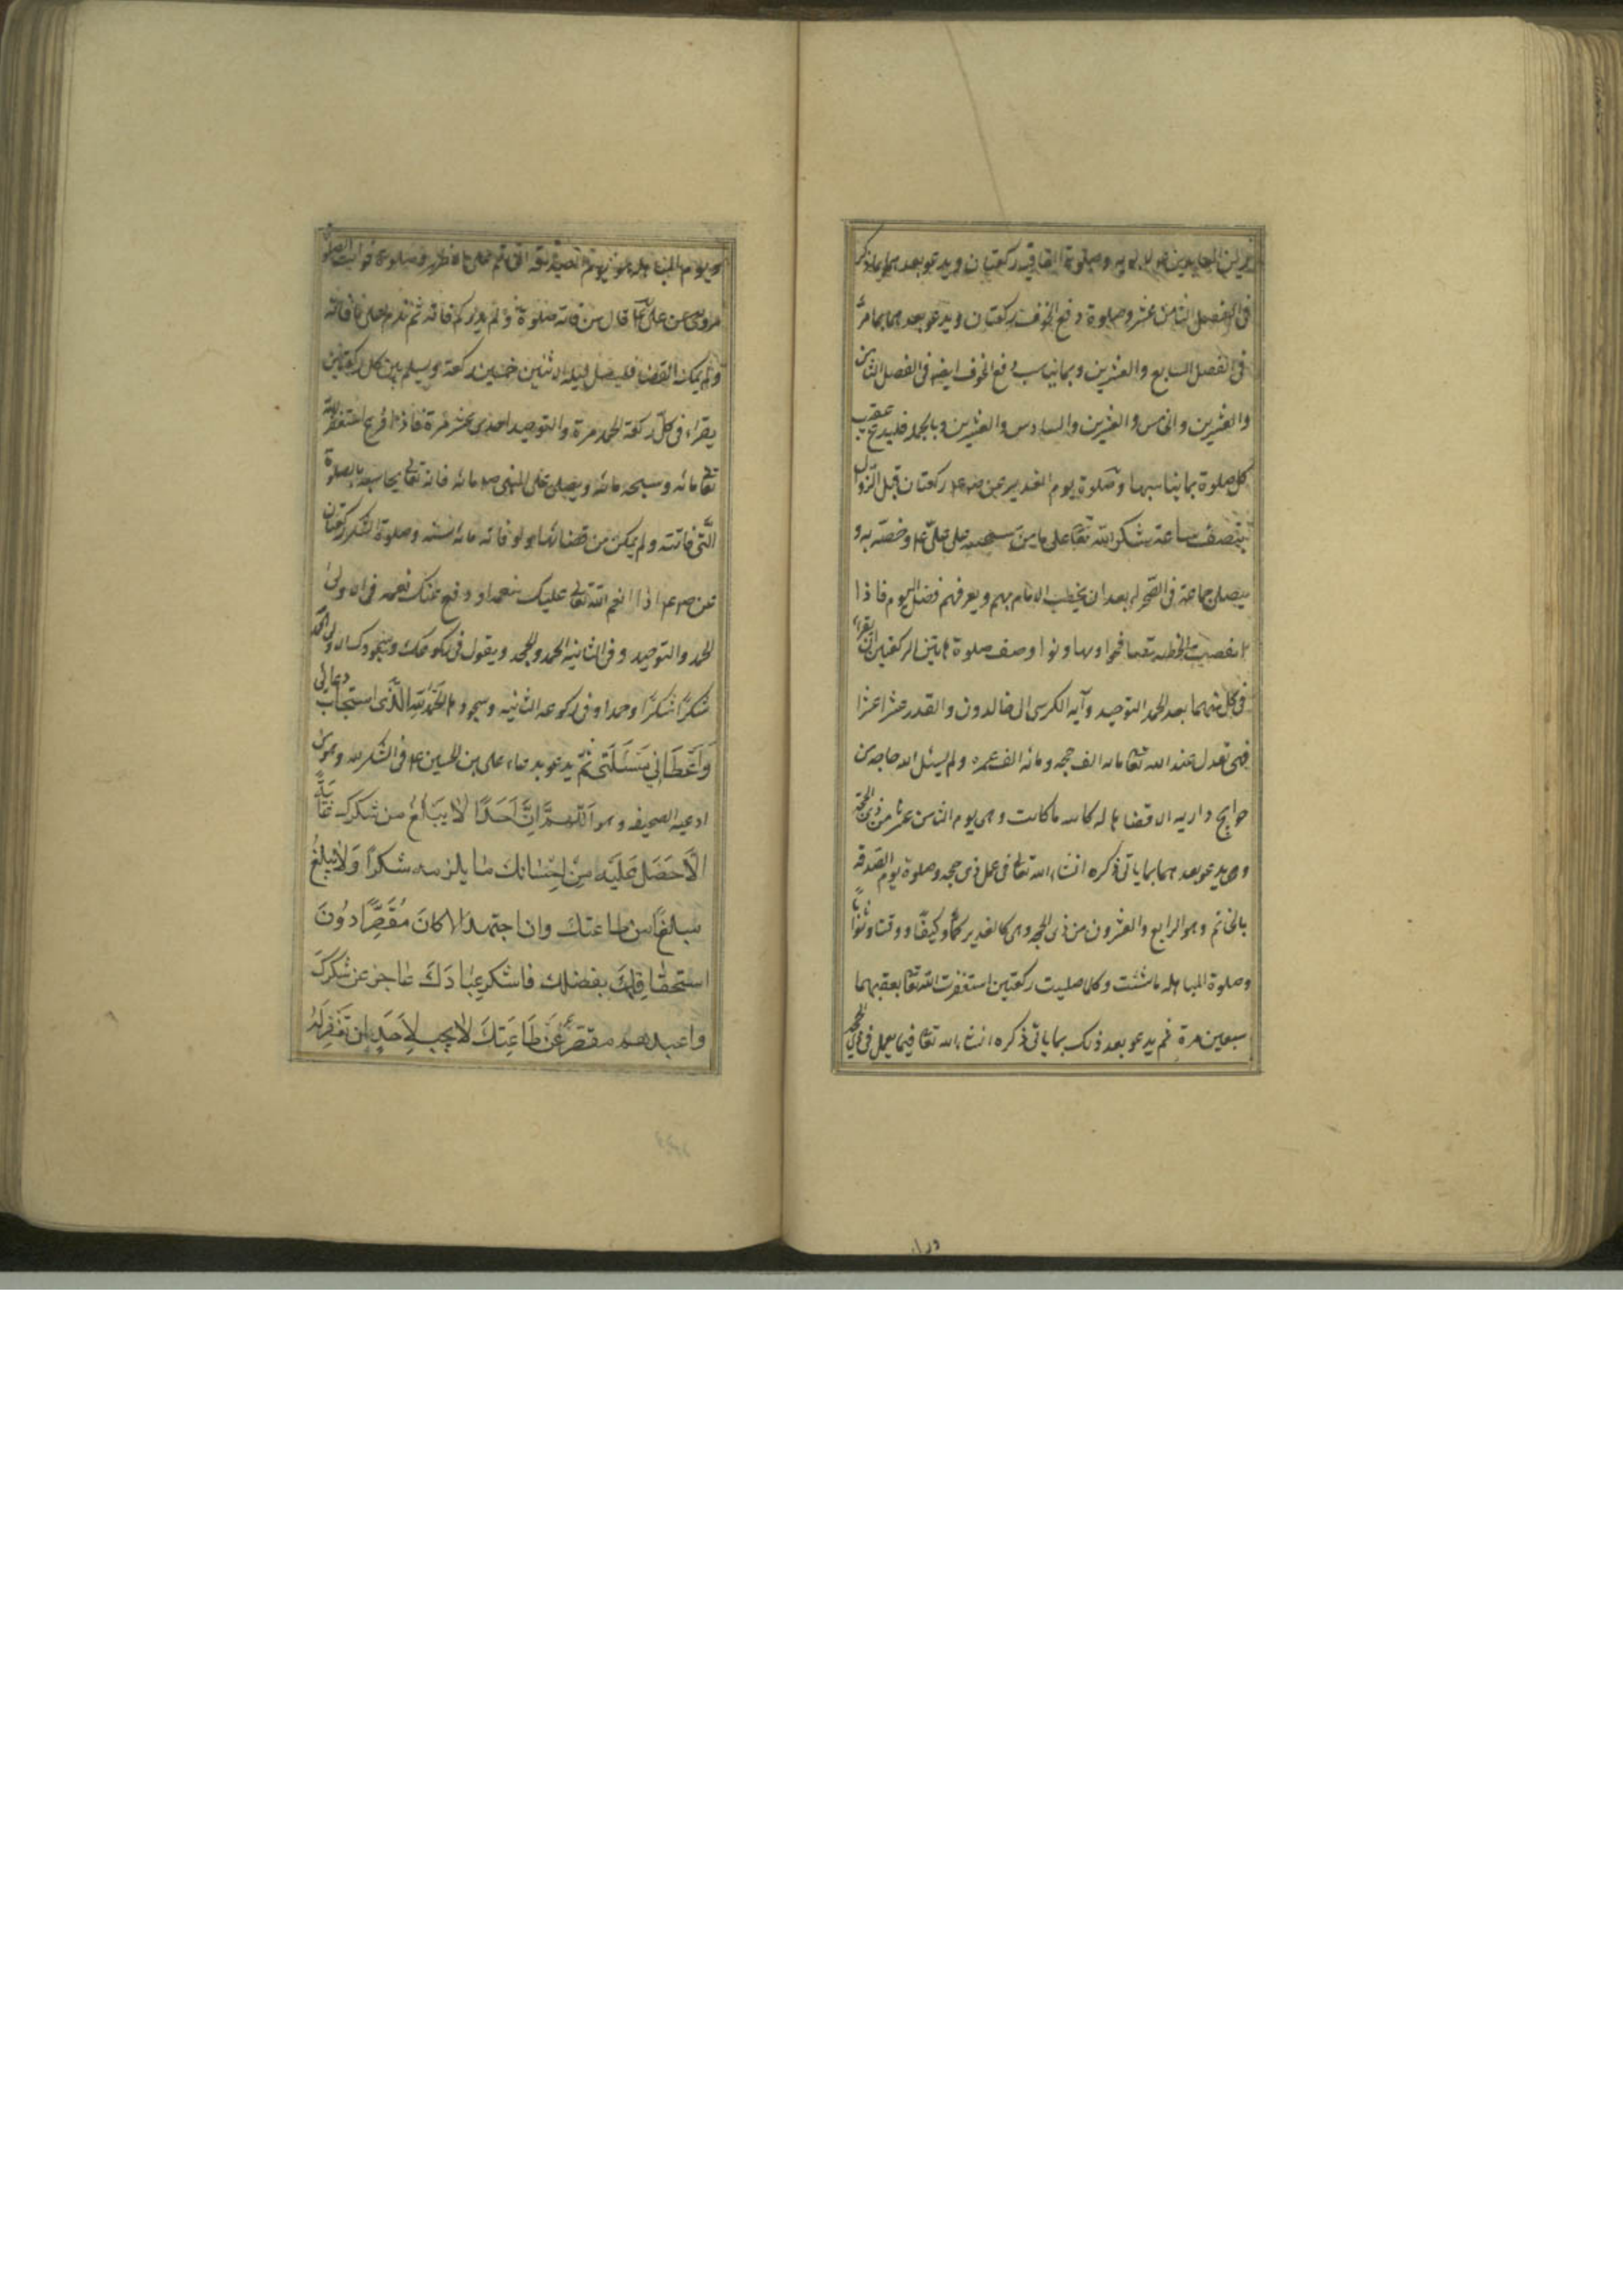 وصلوة العافية ركعتان ويدعو بعدهما بما ذكر
فى الفصل الثامن عشر وصلوة دفع الخوف ركعتان ويدعو بعدهما بما مر
فى الفصل السابع والعشرين وبما يناسب دفع الخوف ايضا فى الفصل الثامن
والعشرين والخامس والعشرين والسادس والعشرين وبالجملة فليدع عقيب
كل صلوة بما يناسبها وصلوة يوم الغدير عن ص ع ركعتان قبل الزوال
بنصف ساعة شكر الله تعا على ما من به على على ع وخصه به و
يصلى جماعة فى الصحراء بعد ان يخطب الامام بهم ويعرفهم فضل اليوم فاذا
انقضت الخطبة تصافحوا وتهانوا وصف صلوة هاتين الركعتين ان يقراء
فى كل منهما بعد الحمد التوحيد وآية الكرسى الى خالدون والقدر عشرا عشرا
فهى تعدل عند الله تعا مائة الف حجة ومائة الف عمرة ولم يسئل الله حاجة من
حوايج داريه الا قضاها له كائنة ما كانت وهى يوم الثامن عشر من ذى الحجة
و يدعو بعدهما بما ياتى ذكره انشاء الله تعالى فى عمل ذى حجة وصلوة يوم الصدقة
بالخاتم وهو الرابع والعشرون من ذى الحجة وهى كالغدير كما وكيفا ووقتا وثوابا
وصلوة المباهلة ما شئت وكلما صليت ركعتين استغفرت الله تعا بعقبهما
سبعين مرة ثم يدعو بعد ذلك بما ياتى ذكره انشاء الله تعا فيما يعمل فى ذى الحجة
يوم المباهلة وصلوة فوايت الصلوة
مروى عن على ع قال من فاته صلوة ولم يدر كم فاته ثم ندم على ما فاته
ولم يمكنه القضا فليصل ليلة الاثنين خمسين ركعة ويسلم بين كل ركعتين
يقراء فى كل ركعة الحمد مرة والتوحيد احدى عشر مرة فاذا فرغ استغفر الله
تعا مائة وسبحه مائة ويصلى على النبى ص مائة فانه تعالى يحاسبه بالصلوة
التى فاتته ولم يمكن من قضائها ولو فاته مائة سنة وصلوة الشكر ركعتان
عن ص ع اذا انعم الله تعالى عليك بنعمة او دفع عنك نقمة فى الاولى
الحمد والتوحيد وفى الثانية الحمد والجحد ويقول فى ركوعك وسجودك الاولى الحمد لله
شكرا شكرا وحمدا وفى ركوعه الثانية وسجوده الحمد لله الذى استجاب دعائى
وَاَعْطَانِي مَسْئَلَتى ثم يدعو بدعاء على بن الحسين ع فى الشكر لله وهو من
ادعية الصحيفة وهو اَللّهُمَّ اِنَّ اَحَدًا لا يَبْلُغُ من شكرك غايَةً
اِلّا حَصَلَ عَلَيْهِ مِنْ اِحْسانِكَ ما يلزمه شكرًا وَلا يبلغ
مبلغًا من طاعتك وان اجتهد الا كانَ مُقَصِّرًا دُونَ
استحقاقِكَ بفضلك فاشكر عِبادَكَ عاجز عن شكرِكَ
واعبدهم مقصّر عَنْ طَاعَتِكَ لا يجب لِاَحَدٍ ان تغفر لَهُ